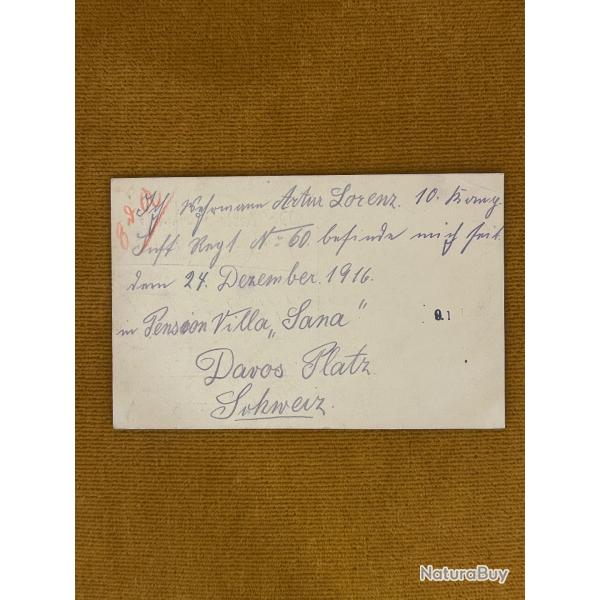 Ich Wehrmann Artur Lorenz. 10. Komp.
Inft Regt No 60. befinde mich seit
dem 24. Dezember. 1916.
in Pension Villa „Sana"
0.1
Davos Platz
Schweiz.
NaturaBuy